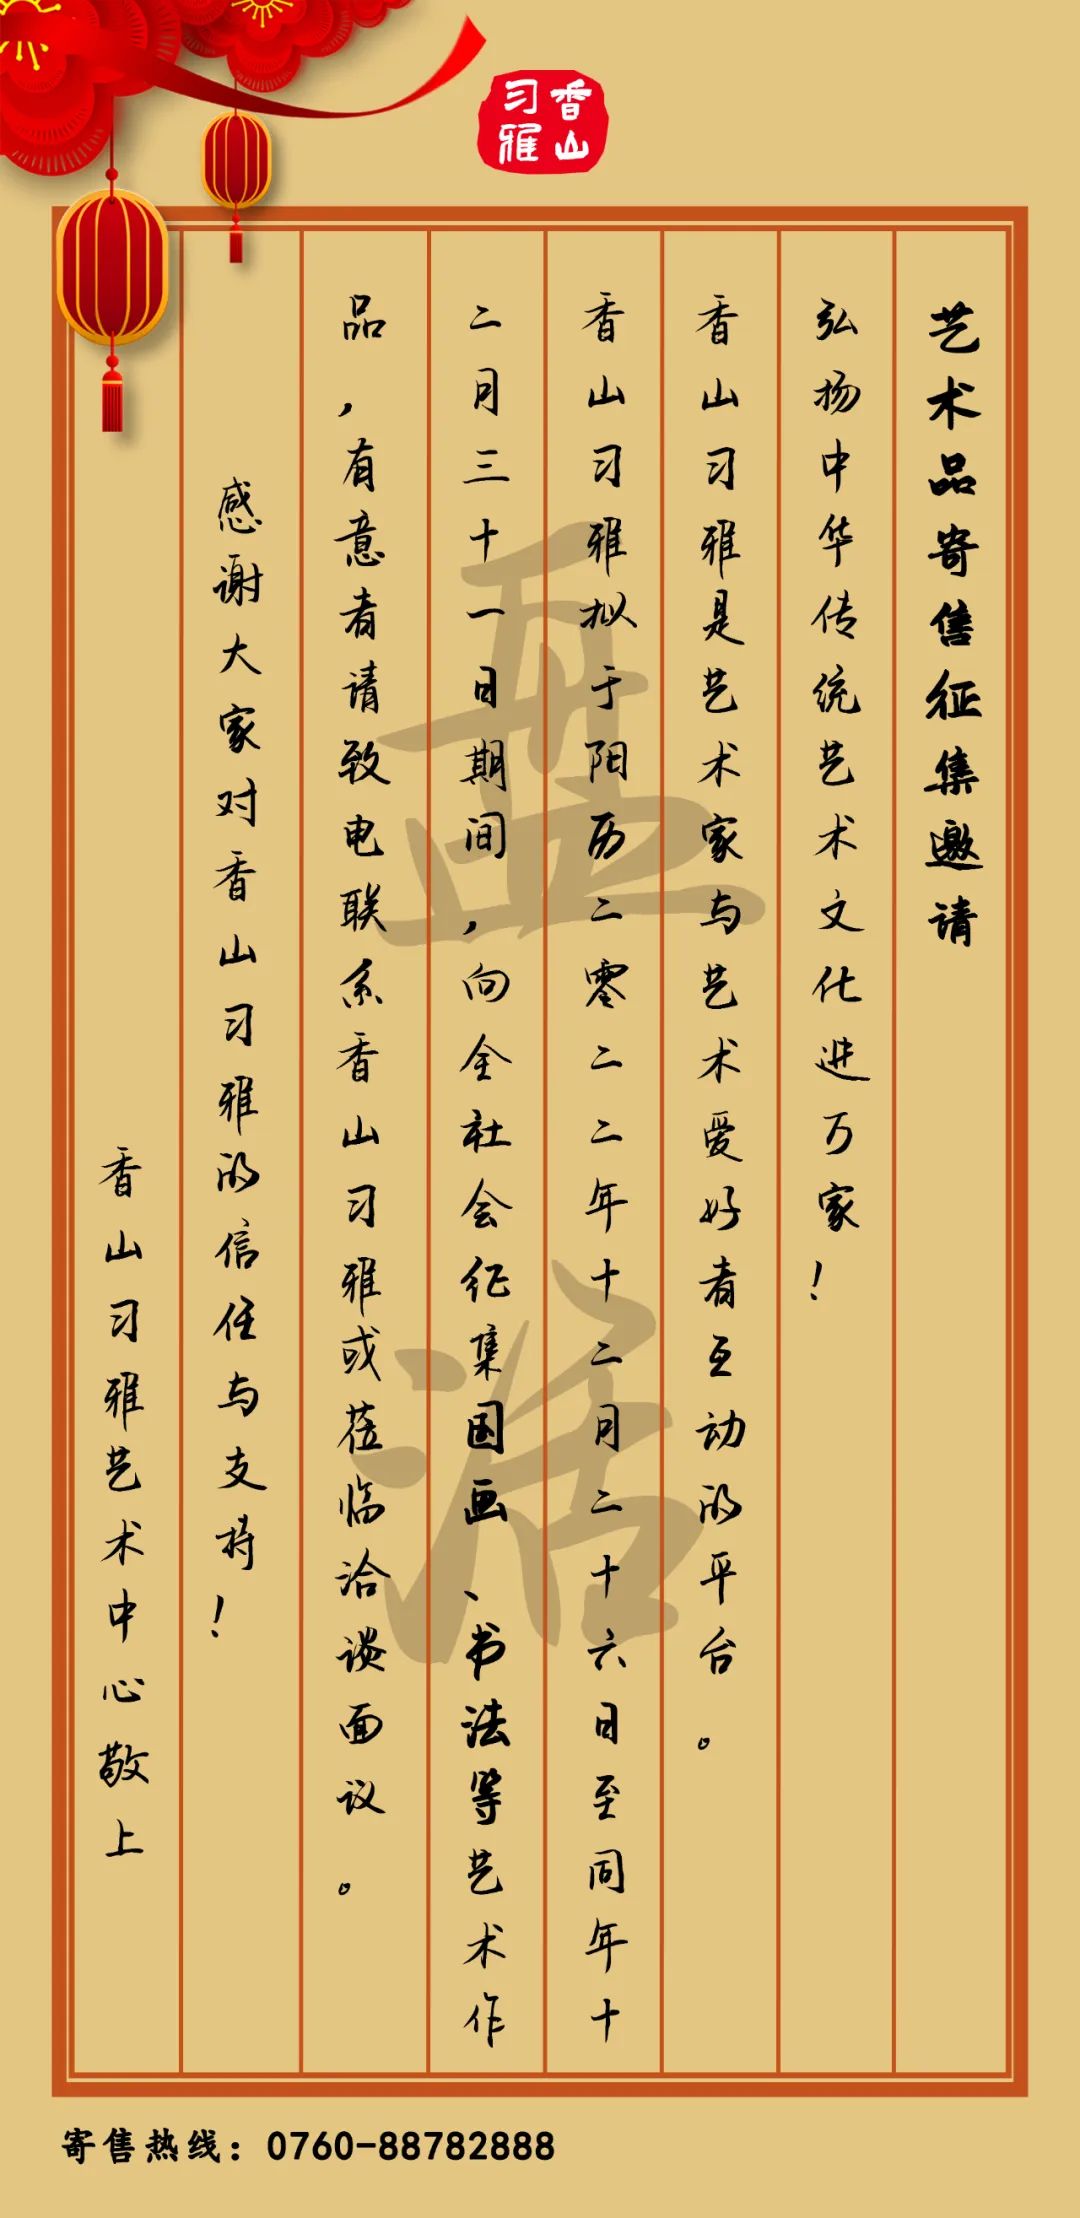 香山
习雅
艺术品寄售征集邀请
弘扬中华传统艺术文化进万家！
香山习雅是艺术家与艺术爱好者互动的平台。
香山习雅拟于阳历二零二二年十二月二十六日至同年十
二月三十一日期间，向全社会征集国画、书法等艺术作
品，有意者请致电联系香山习雅或莅临洽谈面议。
感谢大家对香山习雅的信任与支持！
香山习雅艺术中心敬上
盘活
寄售热线：0760-88782888